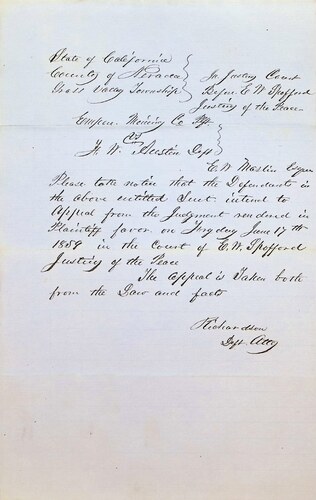 State of California
County of Nevada
Grass Valley Township
In Justice Court
Before E. W. Spofford
Justice of the Peace
Empire Mining Co Pff
vs
H. W. Austin Deft
E. W. Maslin Esqr
Please take notice that the Defendant in
the above entitled Suit intend to
Appeal from the Judgment rendered in
Plaintiff favor on day June 17th
1859 in the Court of E. W. Spofford
Justice of the Peace
The Appeal is Taken both
from the Law and facts
Richardson
Deft Atty